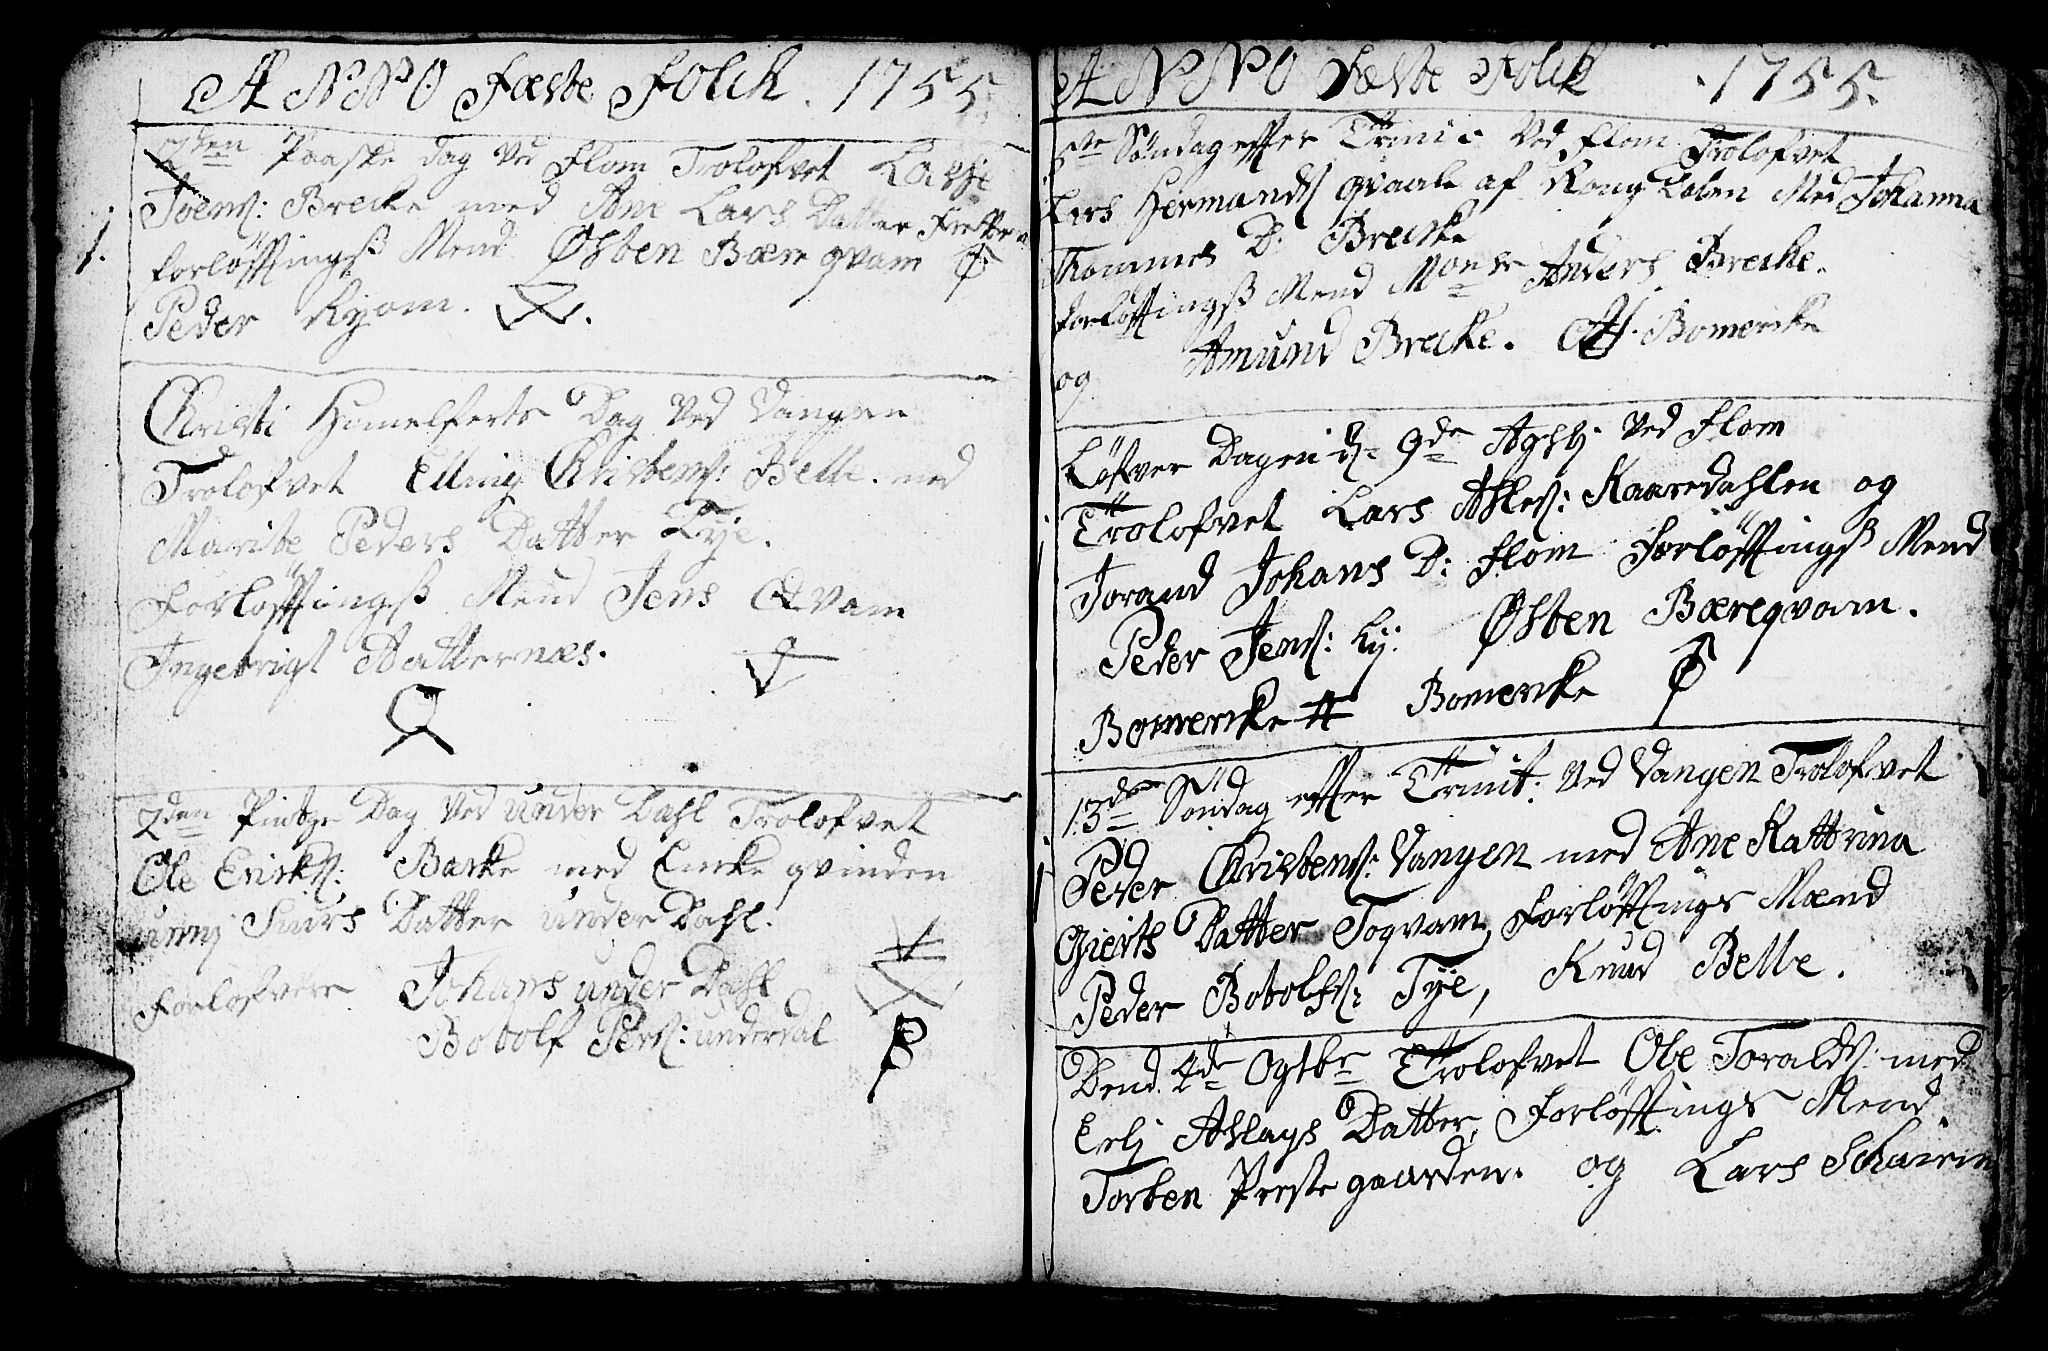 ANNO Fæste Folck. 1755.
2den Paaske dag ved Flom Trolofvet Lasse
Joens: Brecke med Ane Lars Datter
1. forløftingsß Mend Østen Bæreqvam
Peder Ryom.
Christi Himelferts Dag ved Vangen
Trolofvet Elling Christens: Belle. med
Marite Peders Datter Tye.
Forløftingsß Mend Jens Qvam
Ingebrigt Hatternæs.
2den Pintze Dag ved under Dahl Trolofvet
Ole Ericks: Barke med Encke qvinden
unni Siurs Datter under Dahl.
Forlofvere Johans under Dahl
Botolf Pers: underdal
ANNO Fæste Folck 1755.
5te Søndag efter Trini: ved Flom Trolofvet
Lars Hermands qvaale af Kong Delen Med Johanna
Thommes D: Brecke
forløftingsß Mend Monsr Anders Brecke.
og Amund Brecke. Bomercke
Løfver Dagen d. 9de ved Flom
Trolofvet Lars Atles: Kaaredahlen og
Jorand Johans D: Flom Forløftingsß Mend
Peder Jens: Ly: Østen Bæreqvam.
Bomercke # Bomercke
13de Søndag efter Trinit: ved Vangen Trolofvet
Peder Christens: Vangen med Ane Kattrina
Gierts Datter Toqvam, Forløftings Mænd
Peder Botolfs: Tye, Knud Belle.
Dend 4de Ogtbr Trolofvet Ole Toralds: med
Erli Aslags Datter, Forløftings Mend.
Torben Prestegaarden. og Lars